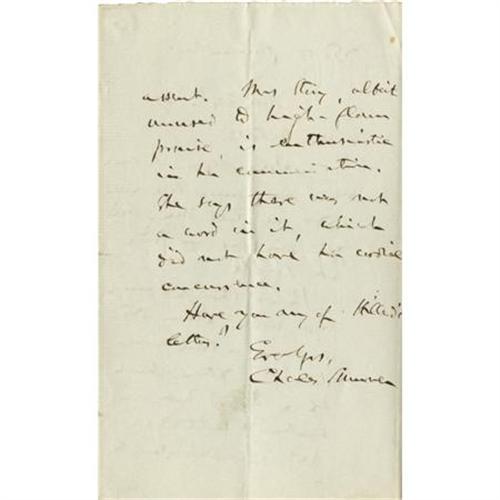 assent. Mrs Story, albeit
unused to high-flown
praise, is enthusiastic
in her communication.
She says there was not
a word in it, which
did not have her cordial
concurrence.
Have you any of Hillard's
letters?
Ever Yrs,
Charles Sumner